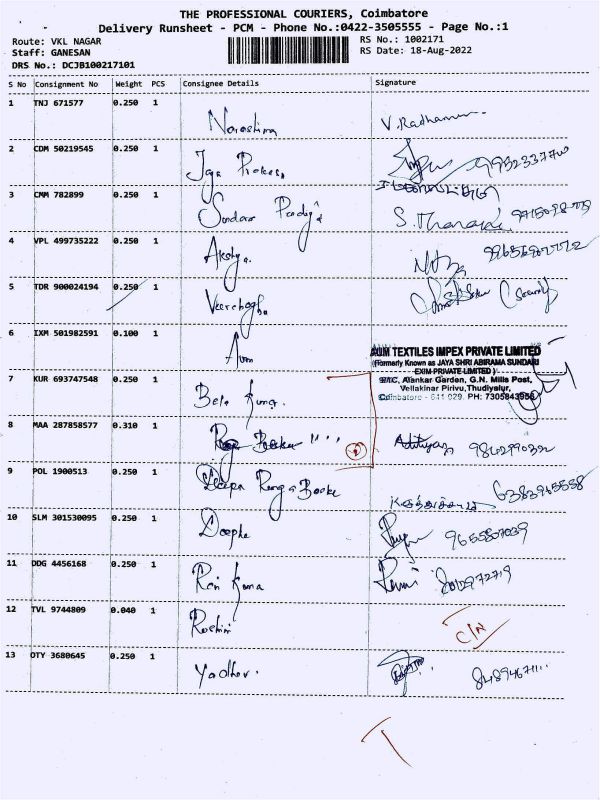 THE PROFESSIONAL COURIERS, Coimbatore
Delivery Runsheet - PCM - Phone No.:0422-3505555 - Page No.:1
Route: VKL NAGAR
RS No.: 1002171
Staff: GANESAN
RS Date: 18-Aug-2022
DRS No.: DCJB100217101
S No Consignment No Weight PCS Consignee Details Signature
1 TNJ 671577 0.250 1
Narashima V. Radhamani
2 CDM 50219545 0.250 1
Jaya Prakash
3 CMM 782899 0.250 1
Sundar Pandiya S. Thanaraj
4 VPL 499735222 0.250 1
Akshya.
5 TDR 900024194 0.250 1
6 IXM 501982591 0.100 1
Arun
AUM TEXTILES IMPEX PRIVATE LIMITED
(Formerly Known as JAYA SHRI ABIRAMA SUNDARI
EXIM PRIVATE LIMITED)
Alankar Garden, G.N. Mills Post,
Vellakinar Pirivu, Thudiyalur,
Coimbatore - 641 029. PH: 7305843550
7 KUR 693747548 0.250 1
Bala Kumar.
8 MAA 287858577 0.310 1
Adithyan 9842990322
9 POL 1900513 0.250 1
Deepa Ranga Baoke
6383965558
10 SLM 301530095 0.250 1
Deepha 9655807039
11 ODG 4456168 0.250 1
Ravi Kumar
12 TVL 9744809 0.040 1
Roshini C/N
13 OTY 3680645 0.250 1
Yadhav.
T